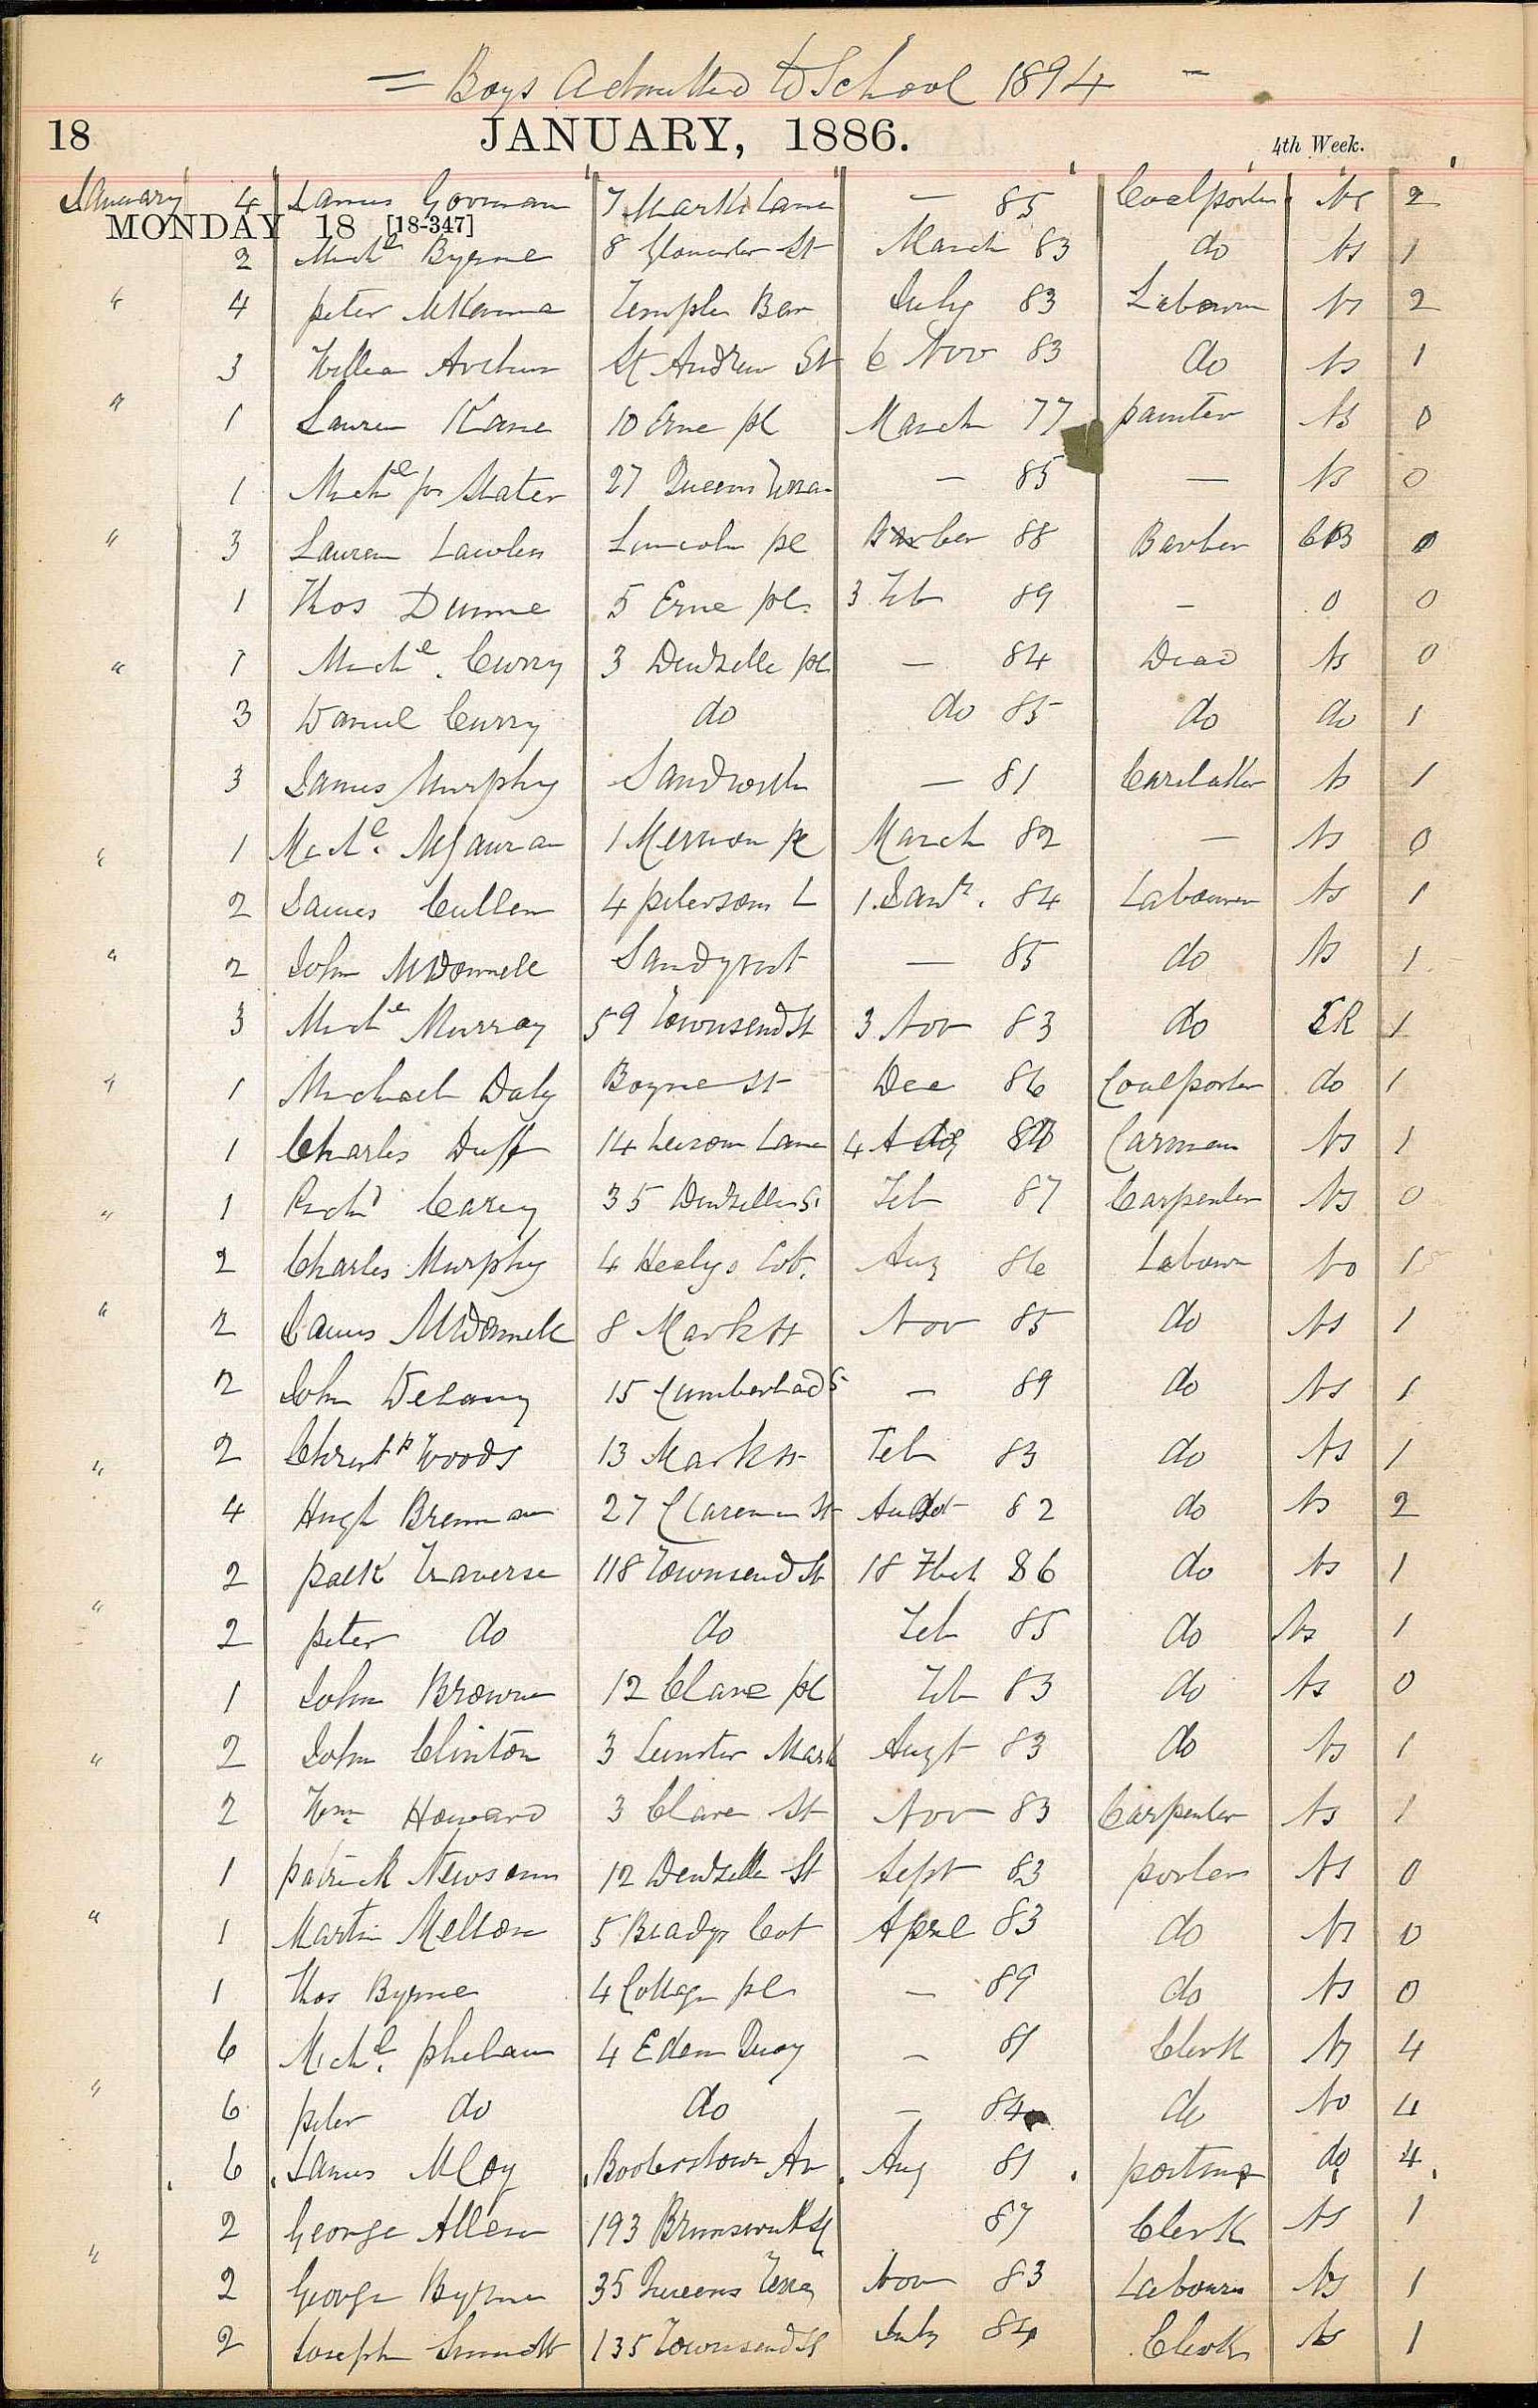 = Boys Admitted to School 1894 -
18 JANUARY, 1886. 4th Week.
January 4 James Gorman 7 Marks Lane — 85 Coalporter Ns 2
MONDAY 18 [18-347]
2 Michl Byrne 8 Gloucester St March 83 do Ns 1
" 4 peter McKenna Temple Bar July 83 Labourer Ns 2
3 William Archer St Andrew St 6 Nov 83 do Ns 1
" 1 Lauren Kane 10 Erne pl March 77 painter Ns 0
1 Michl Slater 27 Queens — 85 — Ns 0
" 3 Lauren Lawless Lincoln pl Barber 88 Barber CB 0
1 Thos Dunne 5 Erne pl 3 Feb 89 - 0 0
" 1 Michl Curry 3 Denzelle pl — 84 Dead Ns 0
3 Daniel Curry do do 85 do do 1
3 James Murphy — 81 Caretaker Ns 1
" 1 Michl McGauran 1 Merrion pl March 82 — Ns 0
2 James Cullen 4 petersons L 1 Jany. 84 Labourer Ns 1
" 2 John McDonnell Sandymt — 85 do Ns 1
3 Michl Murray 59 Townsend St 3 Nov 83 do 1
" 1 Michael Daly Boyne St Dec 86 Coalporter do 1
1 Charles Duff 14 Lane 4 Carman Ns 1
" 1 Richd Carey 35 Denzelle S. Feb 87 Carpenter Ns 0
2 Charles Murphy 4 Healys Cot. Aug 86 Labour No 1
" 2 James McDonnell 8 Mark St Nov 85 do Ns 1
2 John Delany 15 Cumberland S — 89 do Ns 1
" 2 Christr Woods 13 Mark St Feb 83 do Ns 1
4 Hugh Brennan 27 St 82 do Ns 2
2 patk Traverse 118 Townsend St 18 86 do Ns 1
" 2 peter do do Feb 85 do Ns 1
1 John Brown 12 Clare pl Feb 83 do Ns 0
" 2 John Clinton 3 Leinster Mark Augt 83 do Ns 1
2 Wm Howard 3 Clare St Nov 83 Carpenter Ns 1
1 patrick Newsom 12 Denzelle St Sept 83 porter Ns 0
" 1 Martin Mellon 5 Bradys Cot April 83 do Ns 0
1 Thos Byrne 4 College pl — 89 do Ns 0
6 Michl. phelan 4 Eden Quay — 81 Clerk Ns 4
" 6 peter do do — 84 do No 4
6 James McCoy Booterstown Av Aug 81 do 4
2 George Allen 193 Brunswick St 87 Clerk Ns 1
" 2 George Byrne 35 Queens Nov 83 Labourer Ns 1
2 Joseph 135 Townsend St July 84 Clerk Ns 1